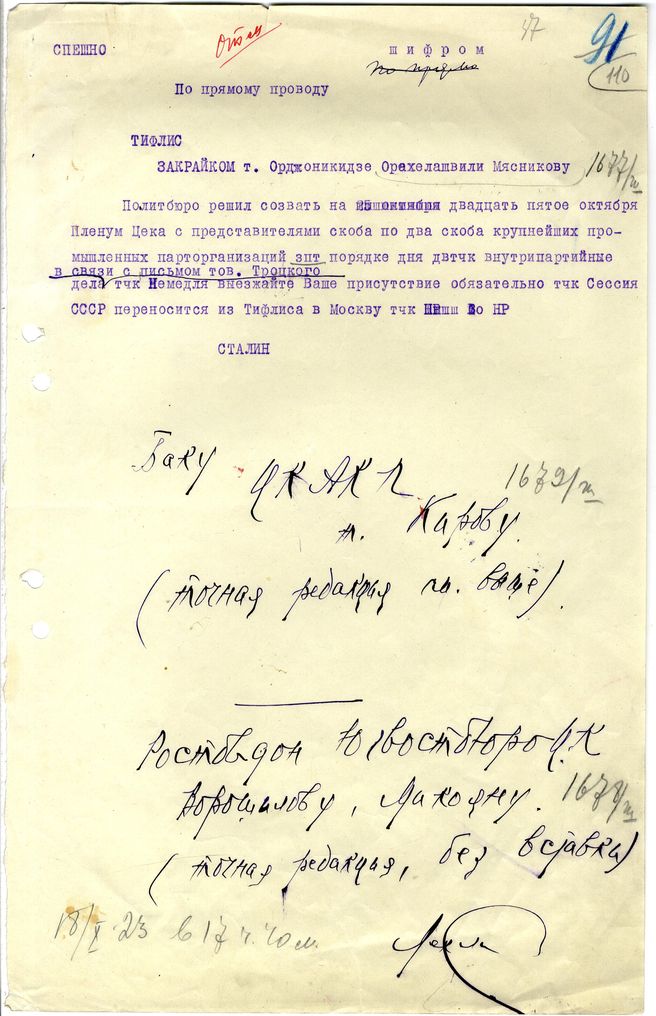 47
91
110
СПЕШНО
шифром
По прямому проводу
ТИФЛИС
ЗАКРАЙКОМ т. Орджоникидзе Орахелашвили Мясникову
1677/ш
Политбюро решил созвать на 25 октября двадцать пятое октября
Пленум Цека с представителями скоба по два скоба крупнейших про-
мышленных парторганизаций зпт порядке дня двтчк внутрипартийные
в связи с письмом тов. Троцкого
дела тчк Немедля выезжайте Ваше присутствие обязательно тчк Сессия
СССР переносится из Тифлиса в Москву тчк НР
СТАЛИН
Баку ЦК АКП
1679/ш
т. Кирову.
(точная редакция см. выше).
Ростов-дон Юговостбюро ЦК
Ворошилову, Микояну. 1678/ш
(точная редакция, без вставки)
18/X 23 в 17 ч. 40 м.